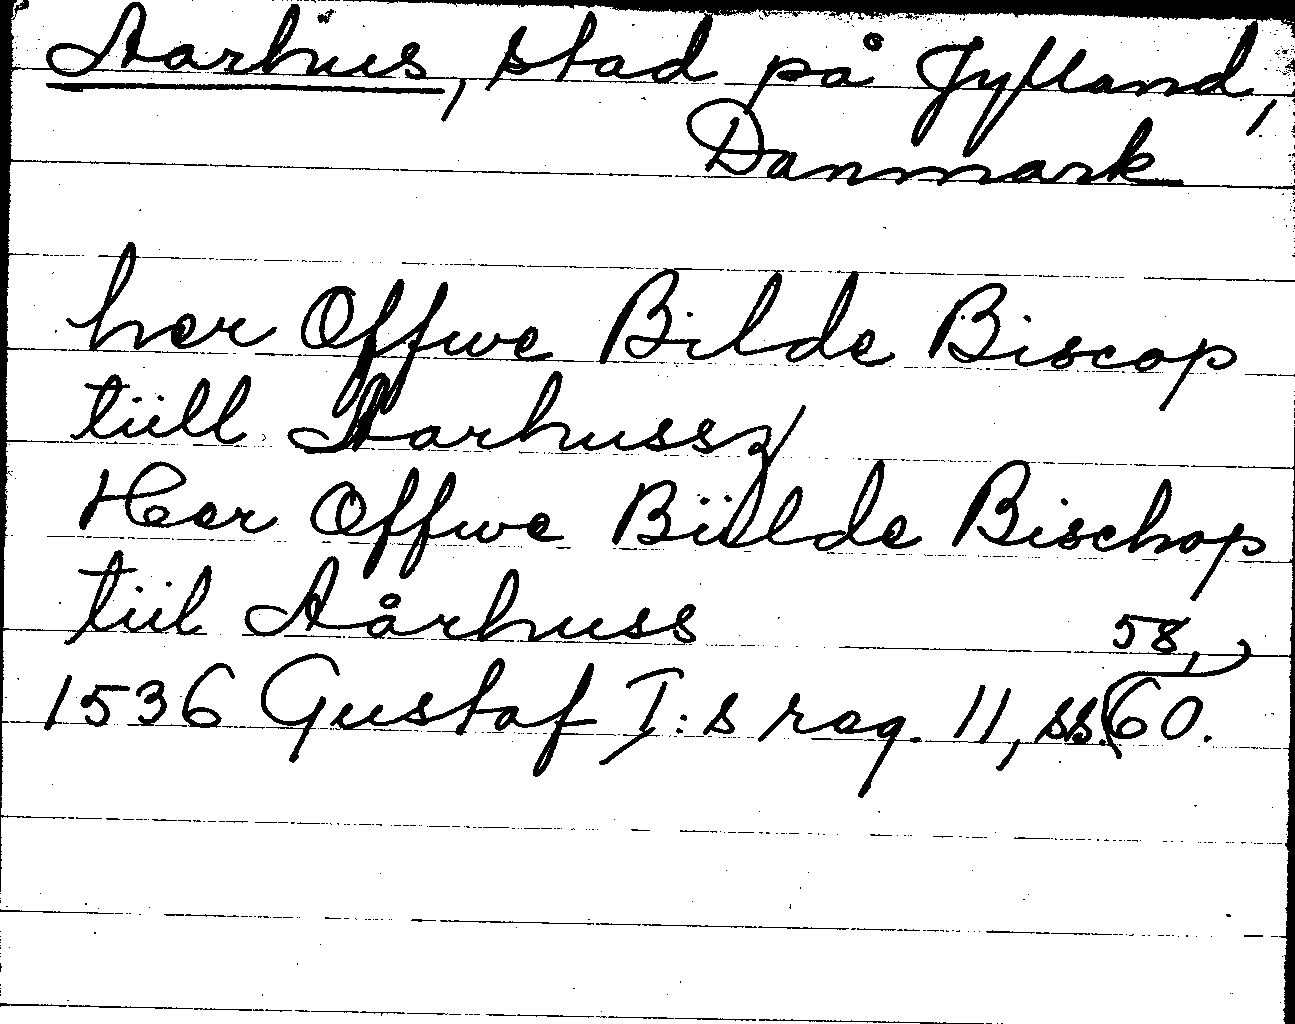 Aarhus, stad på Jylland,
Danmark
her Offwe Bilde Biscop
tiill Aarhussz/
Her Offwe Biillde Bischop
tiil Aårhuss
1536 Gustaf I:s reg. 11, ss. 58, 60.